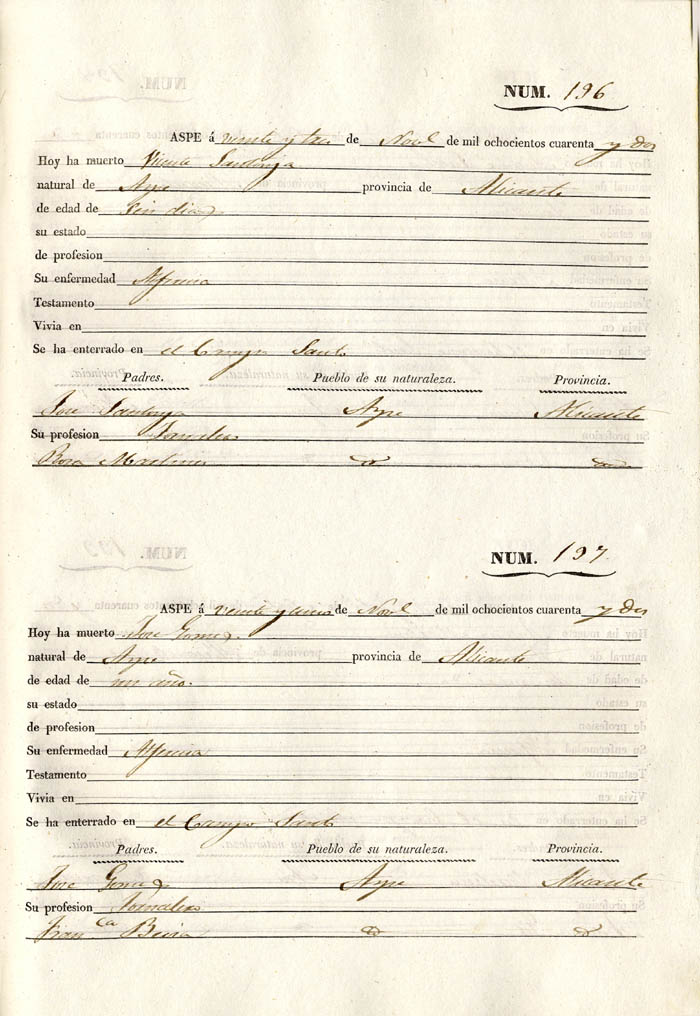 NUM. 196
ASPE á veinte y tres de Novl de mil ochocientos cuarenta y dos
Hoy ha muerto Vicente Santonja
natural de Aspe provincia de Alicante
de edad de dias
su estado
de profesion
Su enfermedad Alferecia
Testamento
Vivia en
Se ha enterrado en el Campo Santo
Padres. Pueblo de su naturaleza. Provincia.
Jose Santonja Aspe Alicante
Su profesion Jornalero
Rosa Martinez
NUM. 197
ASPE á veinte y cinco de Novl de mil ochocientos cuarenta y dos
Hoy ha muerto Jose Gomez
natural de Aspe provincia de Alicante
de edad de un año.
su estado
de profesion
Su enfermedad Alferecia
Testamento
Vivia en
Se ha enterrado en el Campo Santo
Padres. Pueblo de su naturaleza. Provincia.
Jose Gomez Aspe Alicante
Su profesion Jornalero
Franca